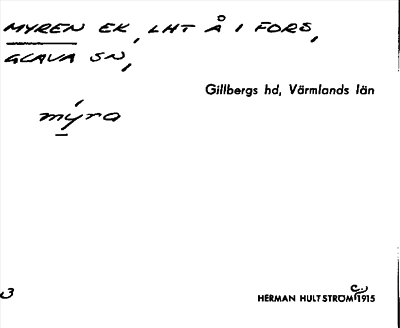 MYREN EK, LHT Å I FORS,
GLAVA SN,
Gillbergs hd, Värmlands län
mýra
3
HERMAN HULTSTRÖM 1915